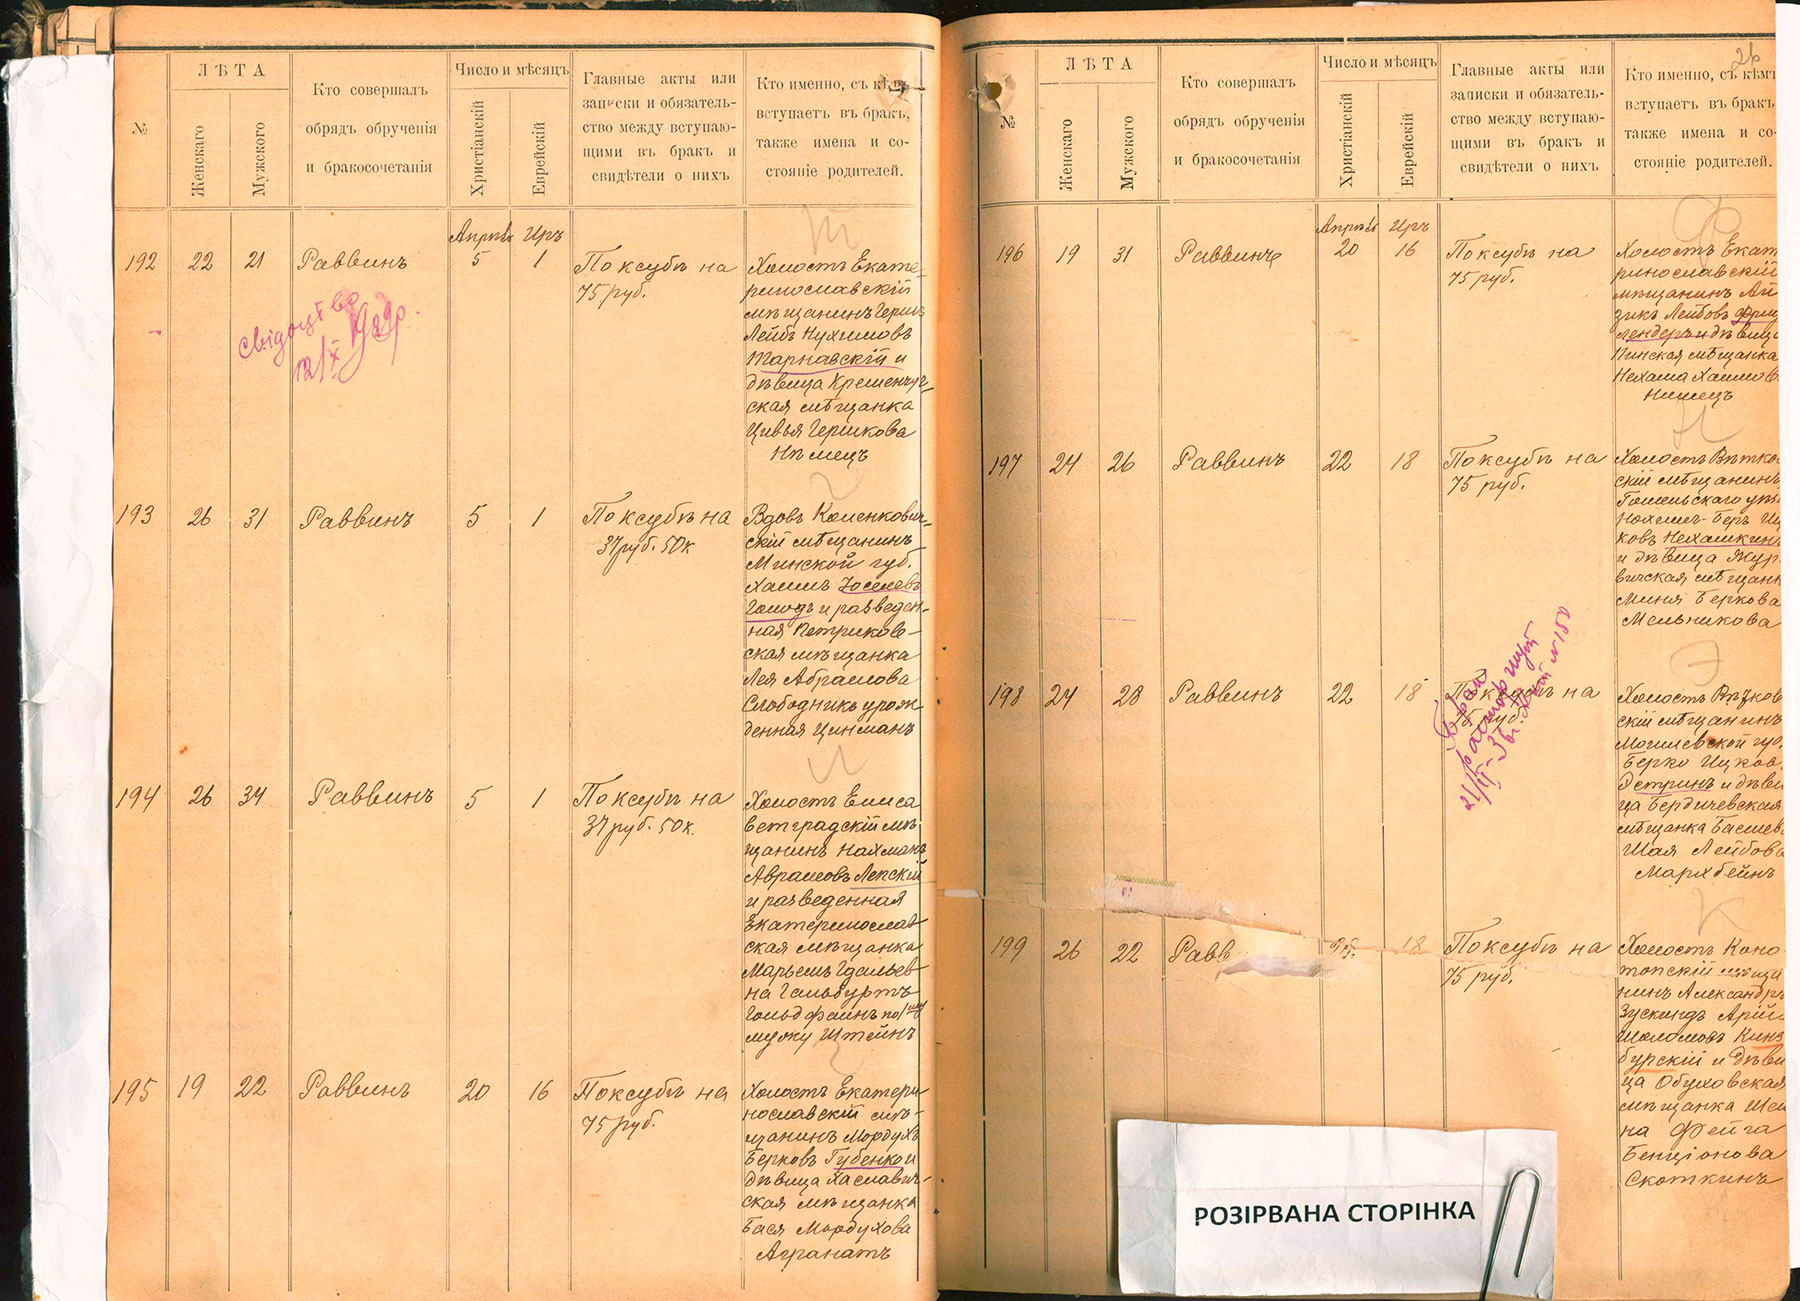 №
ЛѢТА
Женскаго
Мужского
Кто совершалъ
обрядъ обрученія
и бракосочетанія
Число и мѣсяцъ
Христіанскій
Еврейскій
Главные акты или
записки и обязатель-
ство между вступаю-
щими въ бракъ и
свидѣтели о нихъ
Кто именно, съ кѣмъ
вступаетъ въ бракъ,
также имена и со-
стояніе родителей.
Апрѣль Иръ
192 22 21 Раввинъ 5 1
По ксубѣ на
75 руб.
Холостъ Екате-
ринославскій
мѣщанинъ Гершъ
Лейбъ Нухимовъ
Тарнавскій и
дѣвица Кременчуг-
ская мѣщанка
Цивья Гершкова
Нѣмецъ
свідоцтво
193 26 31 Раввинъ 5 1
По ксубѣ на
37 руб. 50 к
Вдовъ Копенкович-
скій мѣщанинъ
Минской губ.
Хаимъ Іоселевъ
Голодъ и разведен-
ная Петриков-
ская мѣщанка
Лея Абрамова
Слободникъ урож-
денная Цинманъ
194 26 34 Раввинъ 5 1
По ксубѣ на
37 руб. 50 к.
Холостъ Елиса
ветградскій мѣ-
щанинъ Нахманъ
Аврамовъ Лепскій
и разведенная
Екатеринослав-
ская мѣщанка
Марьемъ Гдальев-
на Гальбуртъ
Гольдфаинъ по 1му
мужу Штейнъ
195 19 22 Раввинъ 20 16
По ксубѣ на
75 руб.
Холостъ Екатери-
нославскій мѣ-
щанинъ Мордухъ
Берковъ Губенко и
дѣвица Хаславич-
ская мѣщанка
Бася Мордухова
Агранатъ
26
№
ЛѢТА
Женскаго
Мужского
Кто совершалъ
обрядъ обрученія
и бракосочетанія
Число и мѣсяцъ
Христіанскій
Еврейскій
Главные акты или
записки и обязатель-
ство между вступаю-
щими въ бракъ и
свидѣтели о нихъ
Кто именно, съ кѣмъ
вступаетъ въ бракъ,
также имена и со-
стояніе родителей.
Апрѣль Иръ
196 19 31 Раввинъ 20 16
По ксубѣ на
75 руб.
Холостъ Екат
ринославскій
мѣщанинъ Ай
зикъ Лейбовъ Фрид
лендеръ и дѣвица
Пинская мѣщанка
Нехама Хаимов
Нимецъ
197 24 26 Раввинъ 22 18
По ксубѣ на
75 руб.
Холостъ Вѣтков
скій мѣщанинъ
Гомельскаго уѣз
Нохимъ-Беръ Иц
ковъ Нехамкинъ
и дѣвица Жур
вичская мѣщанк
Миня Беркова
Мельникова
198 24 28 Раввинъ 22 18
По ксубѣ на
75 руб.
Брак
расторгнут
Холостъ Вѣтков
скій мѣщанинъ
Могилевской гуо.
Берко Ицков.
Петринъ и дѣви
ца Бердичевская
мѣщанка Басшев
Шая Лейбова
Мархбейнъ
199 26 22 Равв 18
По ксубѣ на
75 руб.
Холостъ Коно-
топскій мѣща
нинъ Александръ
Зускиндъ Арій
Шоломовъ Кинз
бурскій и дѣви
ца Обуховская
мѣщанка Шей
на Фейга
Бенціонова
Скоткинъ
РОЗІРВАНА СТОРІНКА